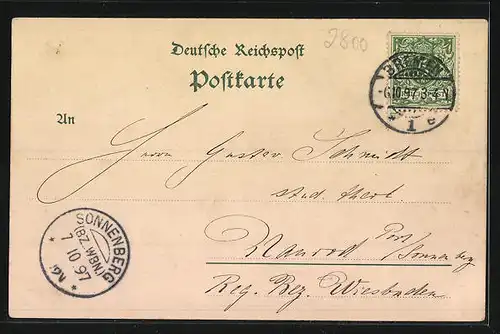 2800
Deutsche Reichspost
Postkarte
BREMEN
-6 10 97 3-4 N
* 1 c
An
Herrn Gustav Schmidt
stud. theol.
Naurod Post Sonnenberg
Reg. Bez. Wiesbaden
SONNENBERG
(BZ. WBN)
7 10 97